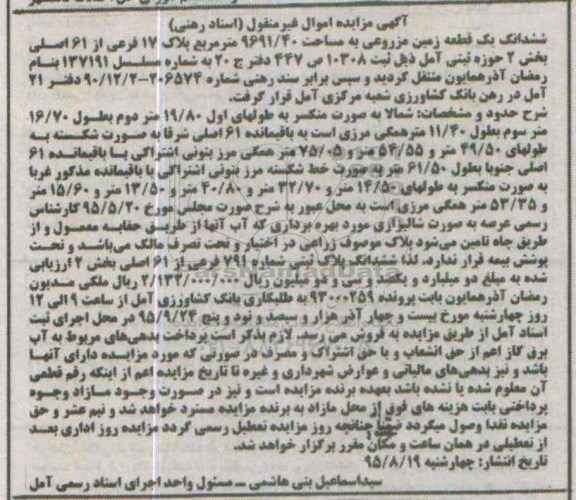 آگهی مزایده اموال غیرمنقول (اسناد رهنی)
ششدانگ یک قطعه زمین مزروعی به مساحت ۹۶۹۱/۴۰ مترمربع پلاک ۱۷ فرعی از ۶۱ اصلی
بخش ۲ حوزه ثبتی آمل ذیل ثبت ۱۰۳۰۸ ص ۴۴۷ دفتر ج ۲۰ به شماره مسلسل ۱۳۷۱۹۱ بنام
رمضان آذرهمایون منتقل گردید و سپس برابر سند رهنی شماره ۲۰۶۵۷۴-۹۰/۱۲/۲ دفتر ۲۱
آمل در رهن بانک کشاورزی شعبه مرکزی آمل قرار گرفت.
شرح حدود و مشخصات: شمالا به صورت منکسر به طولهای اول ۱۹/۸۰ متر دوم بطول ۱۶/۷۰
متر سوم بطول ۱۱/۴۰ مترهمگی مرزی است به باقیمانده ۶۱ اصلی شرقا به صورت شکسته به
طولهای ۴۹/۵۰ متر و ۵۴/۵۵ متر و ۷۵/۰۵ متر همگی مرز بتونی اشتراکی با باقیمانده ۶۱
اصلی جنوبا بطول ۶۱/۵۰ متر به صورت خط شکسته مرز بتونی اشتراکی با باقیمانده مذکور غربا
به صورت منکسر به طولهای ۱۴/۵۰ متر و ۳۲/۷۰ متر و ۴۰/۸۰ متر و ۱۳/۵۰ متر و ۱۵/۶۰ متر
و ۵۳/۳۵ متر همگی مرزی است به محل عبور به شرح صورت مجلس مورخ ۹۵/۵/۲۰ کارشناس
رسمی عرصه به صورت شالیزاری مورد بهره برداری که آب آنها از طریق حقابه معمول و از
طریق چاه تامین می‌شود پلاک موصوف زراعی در اختیار و تحت تصرف مالک می‌باشد و تحت
پوشش بیمه قرار ندارد. لذا ششدانگ پلاک ثبتی شماره ۷۹۱ فرعی از ۶۱ اصلی بخش ۲ ارزیابی
شده به مبلغ دو میلیارد و یکصد و سی و دو میلیون ریال ۲/۱۳۲/۰۰۰/۰۰۰ ریال ملکی مدیون
رمضان آذرهمایون بابت پرونده ۹۳۰۰۲۵۹ به طلبکاری بانک کشاورزی آمل از ساعت ۹ الی ۱۲
روز چهارشنبه مورخ بیست و چهار آذر هزار و سیصد و نود و پنج ۹۵/۹/۲۴ در محل اجرای ثبت
اسناد آمل از طریق مزایده به فروش می رسد. لازم بذکر است پرداخت بدهی‌های مربوط به آب
برق گاز اعم از حق انشعاب و یا حق اشتراک و مصرف در صورتی که مورد مزایده دارای آنها
باشد و نیز بدهی‌های مالیاتی و عوارض شهرداری و غیره تا تاریخ مزایده اعم از اینکه رقم قطعی
آن معلوم شده یا نشده باشد بعهده برنده مزایده است و نیز در صورت وجود مازاد وجوه
پرداختی بابت هزینه های فوق از محل مازاد به برنده مزایده مسترد خواهد شد و نیم عشر و حق
مزایده نقدا وصول میگردد ضمنا چنانچه روز مزایده تعطیل رسمی گردد مزایده روز اداری بعد
از تعطیلی در همان ساعت و مکان مقرر برگزار خواهد شد.
تاریخ انتشار: چهارشنبه ۹۵/۸/۱۹
سیداسماعیل بنی هاشمی – مسئول واحد اجرای اسناد رسمی آمل